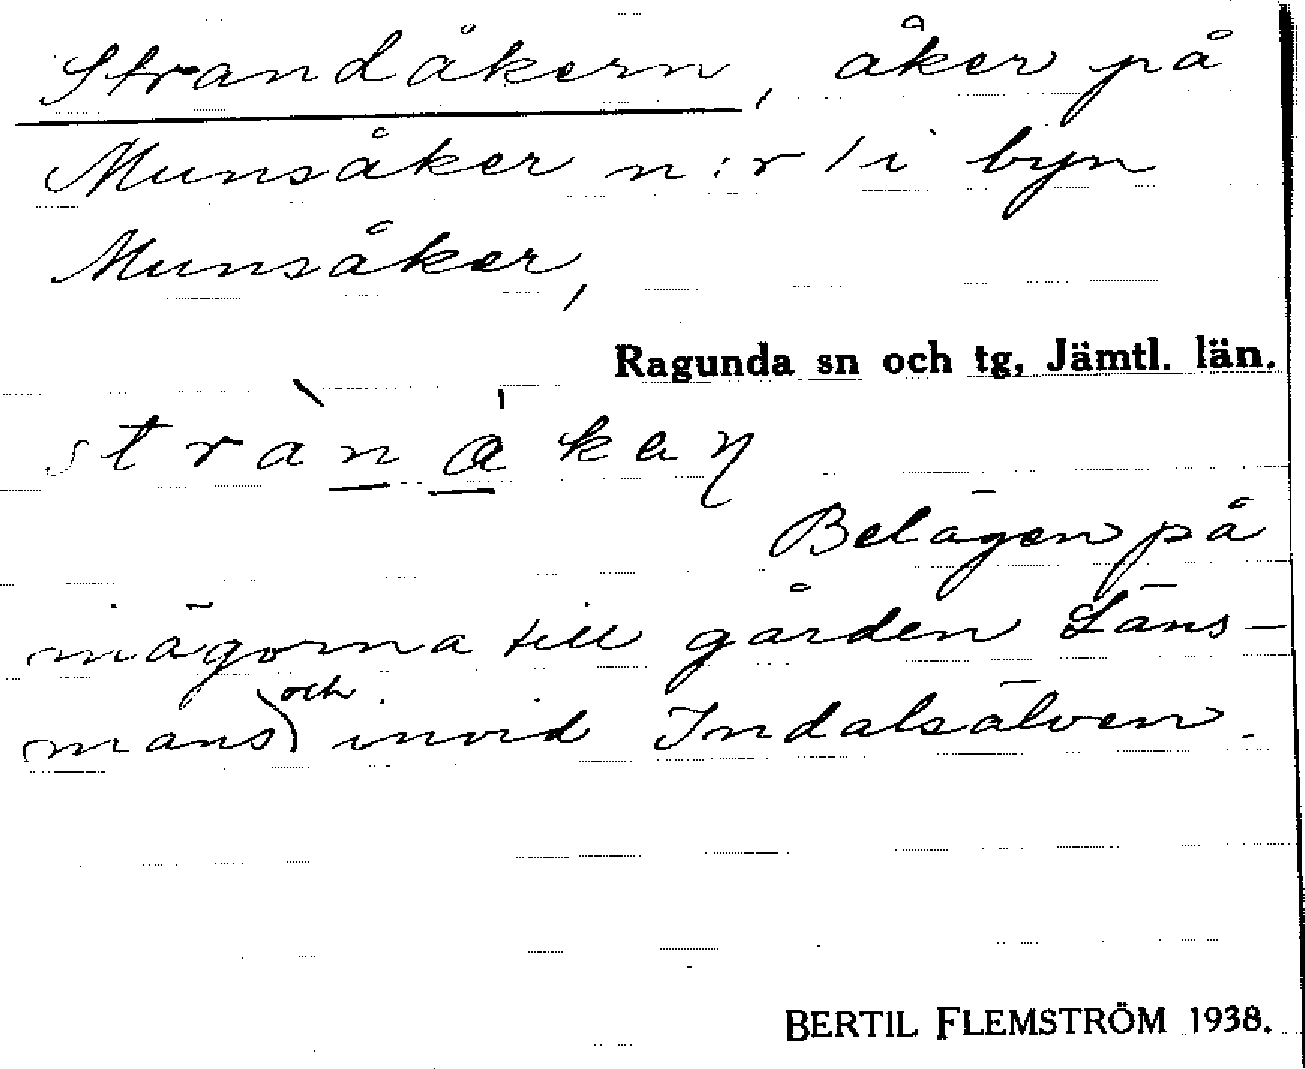 Strandåkern, åker på
Munsåker n:r 1 i byn
Munsåker,
Ragunda sn och tg, Jämtl. län.
Belägen på
inägorna till gården Läns-
mans och invid Indalsälven.
BERTIL FLEMSTRÖM 1938.